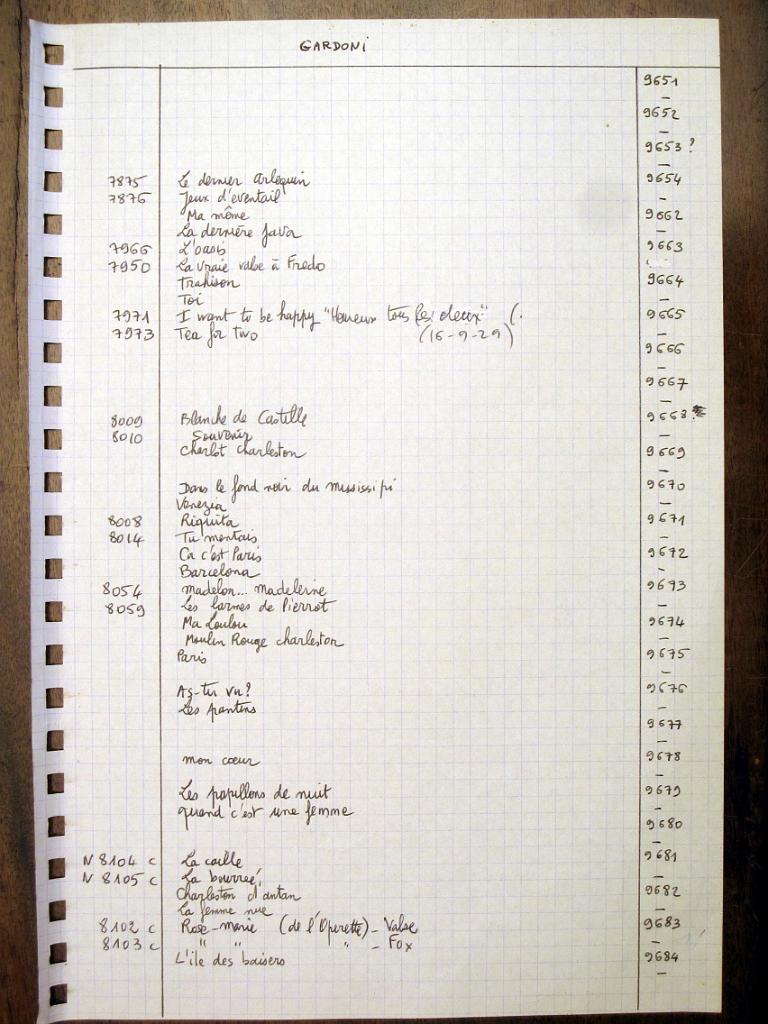 GARDONI
9651
9652
9653 ?
7875 Le dernier arlequin 9654
7876 Jeux d'eventail
Ma même 9662
La dernière java
7966 L'oasis 9663
7950 La vraie valse à Fredo
Trahison 9664
Toi
7971 I want to be happy "Heureux tous les deux" (. 9665
7973 Tea for two (16-9-29)
9666
9667
8009 Blanche de Castille 9668 ?
8010 Souvenir
Charlot charleston 9669
Dans le fond noir du mississipi 9670
Venezia
8008 Riquita 9671
8014 Tu mentais
Ca c'est Paris 9672
Barcelona
8054 madelon... madeleine 9673
8059 Les larmes de Pierrot
Ma Loulou 9674
Moulin Rouge charleston
Paris 9675
As-tu vu ? 9676
Les pantins
9677
mon cœur 9678
Les papillons de nuit 9679
quand c'est une femme
9680
N 8104 c La caille 9681
N 8105 c La bourreé
Charleston d'antan 9682
La femme nue
8102 c Rose-marie (de l'Operette) - Valse 9683
8103 c " " " - Fox
L'ile des baisers 9684